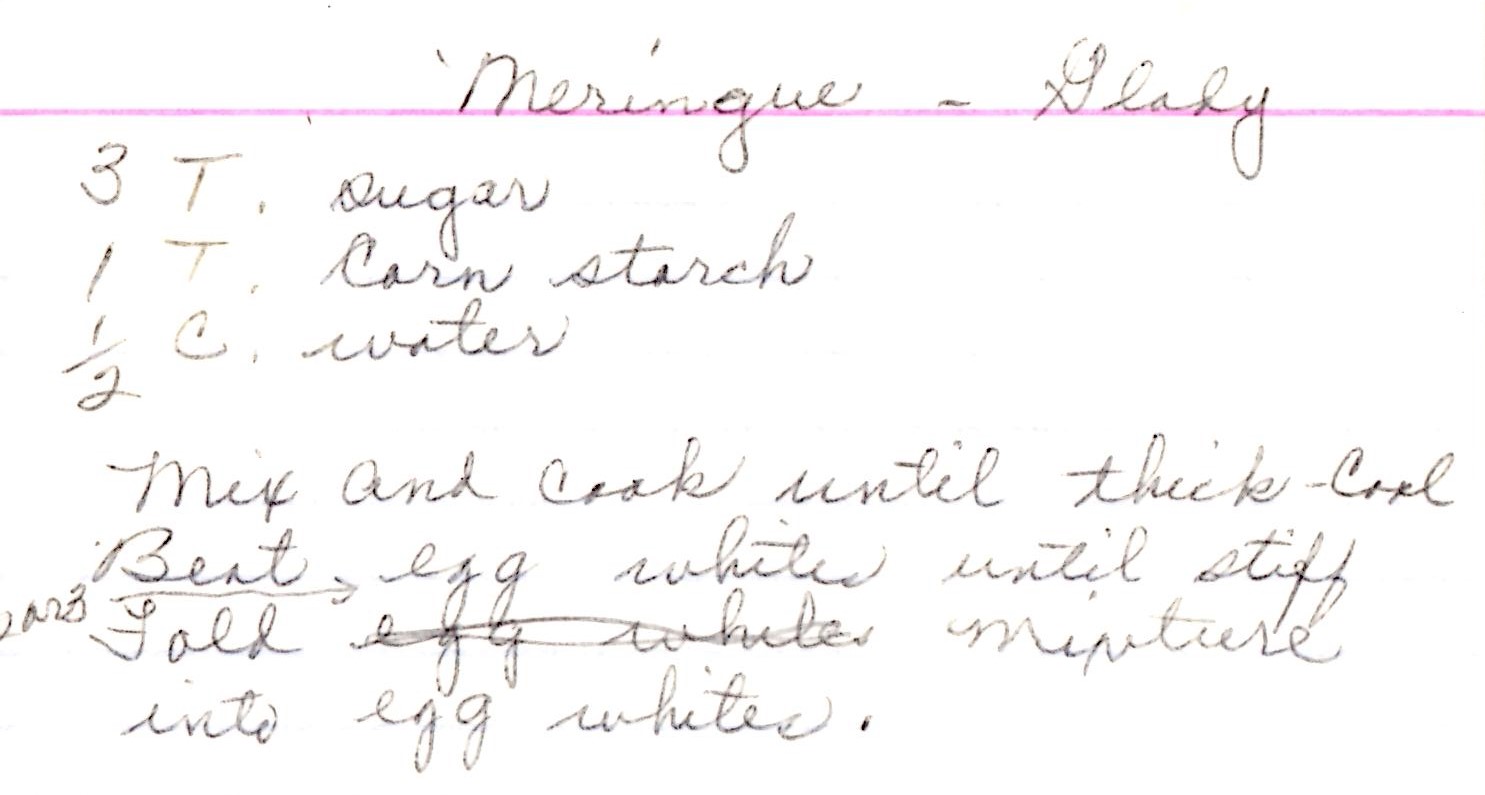 Meringue - Glady
3 T. sugar
1 T. Corn starch
1/2 C. water
Mix and cook until thick - Cool
Beat → egg whites until stiff
2 or 3 Fold ~~egg whites~~ mixture
into egg whites.